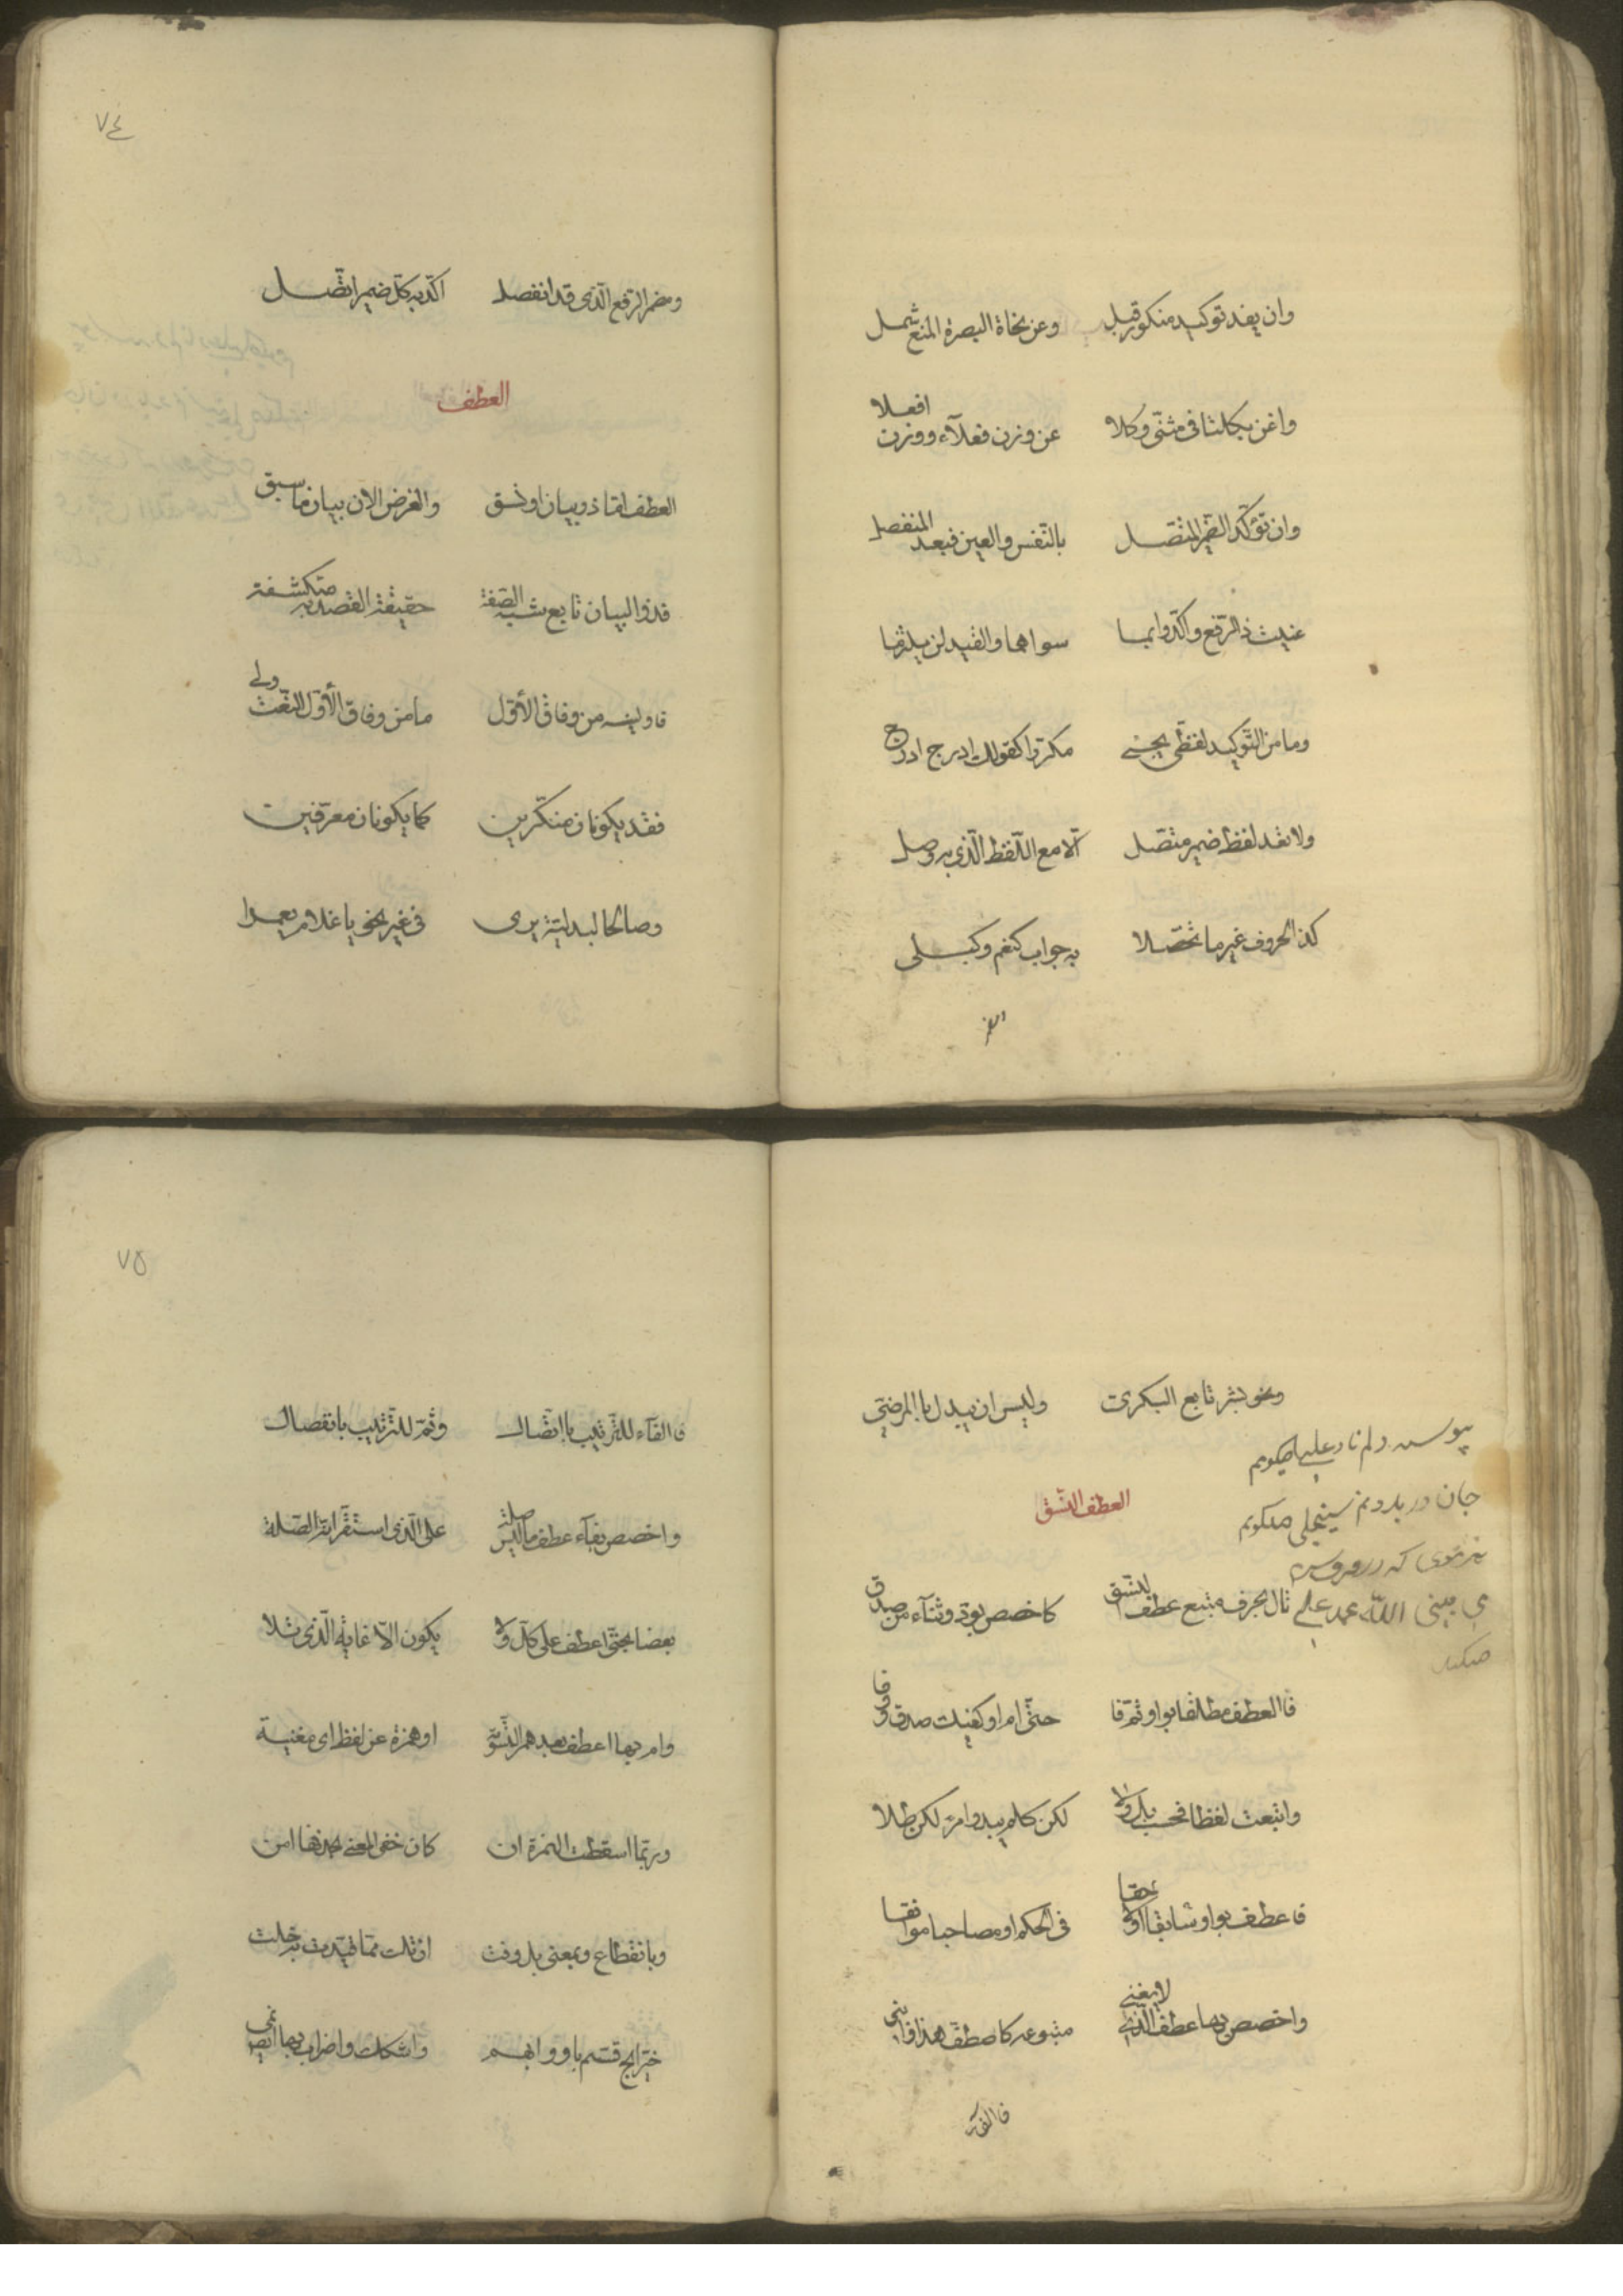 وان يفد توكيد منكور قبل وعن نحاة البصرة المنع شمل
واغن بكلتا فى مثنّى وكلا عن وزن فعلآء ووزن افعلا
وان تؤكّد الضمير المتّصل بالنّفس والعين فبعد المنفصل
عنيت ذا الرّفع واكّدوا بما سواهما والقيد لن يلتزما
وما من التّوكيد لفظّى يجئ مكرّرا كقولك ادرج ادرج
ولا تعد لفظ ضمير متّصل الّا مع اللّفظ الّذى به وصل
كذا الحروف غير ما تحصّلا به جواب كنعم وكبلى
٧٤
ومضمر الرّفع الّذى قد انفصل اكّد به كلّ ضمير اتّصل
العطف
العطف امّا ذو بيان او نسق والغرض الان بيان ما سبق
فذو البيان تابع شبه الصّفة حقيقة القصد به منكشفة
فاولينه من وفاق الأوّل ما من وفاق الأوّل النعت ولى
فقد يكونان منكّرين كما يكونان معرّفين
وصالحا لبدليّة يرى فى غير نحو يا غلام يعمرا
ونحو بشر تابع البكرى وليس ان يبدل باالمرضّى
العطف النسّق
تال بحرف متبع عطف النسّق كاخصص بودّ وثنآء من صدق
فاالعطف مطلقا بواو ثمّ فا حتّى ام او كفيك صدق ووفا
واتبعت لفظا فحسب بل ولا لكن كلم يبد وامرء لكن طلا
فاعطف بواو سابقا او لاحقا فى الحكم او مصاحبا موافقا
واخصص بها عطف الّذى لا يغنى متبوعه كاصطفّ هذا وابنى
فا الفآء
پيوسته دلم ناد عليا ميكويم
جان در بدنم سينجلى ميكويم
مى بينى الله محمد على
ميكند
٧٥
فا الفآء للتّرتيب باتّصال وثمّ للتّرتيب بانفصال
واخصص بفآء عطف ما ليس صلة على الّذى استقرّ انّه الصّلة
بعضا بحتّى اعطف على كلّ ولا يكون الّا غاية الّذى تلا
وام بها اعطف بعد همز التّسويّة او همزة عن لفظ اى مغنية
وربّما اسقطت الهمزة ان كان خفى المعنى بحذفها امن
وبانقطاع وبمعنى بل وفت ان تك ممّا قيّدت به خلت
خيّر ابح قسّم باو وابهم واشكك واضراب بها ايضا نمى